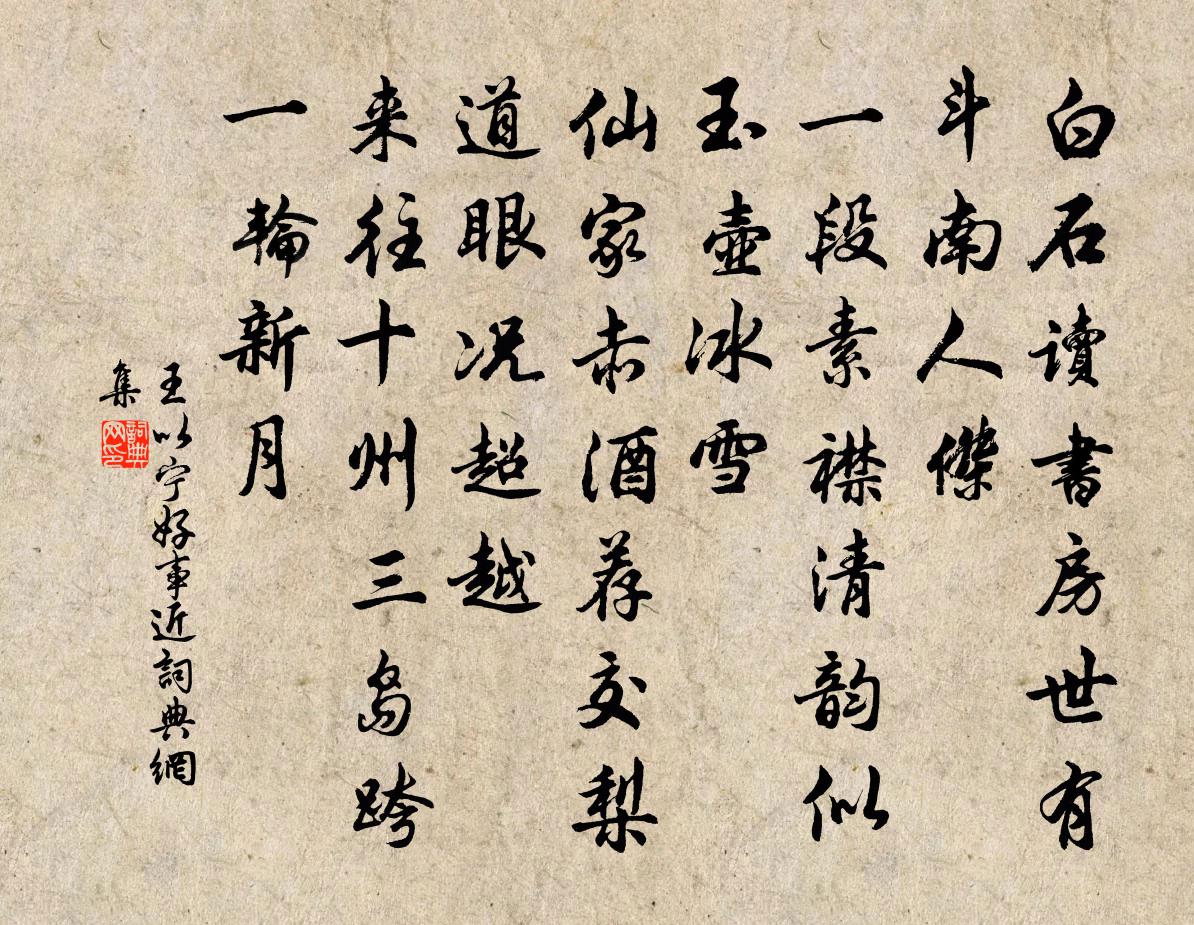 白石讀書房世有
斗南人傑
一段素襟清韵似
玉壺冰雪
仙家赤酒荐交梨
道眼况超越
来往十州三島跨
一輪新月
王以宁好事近詞典網
集
詞典
网印